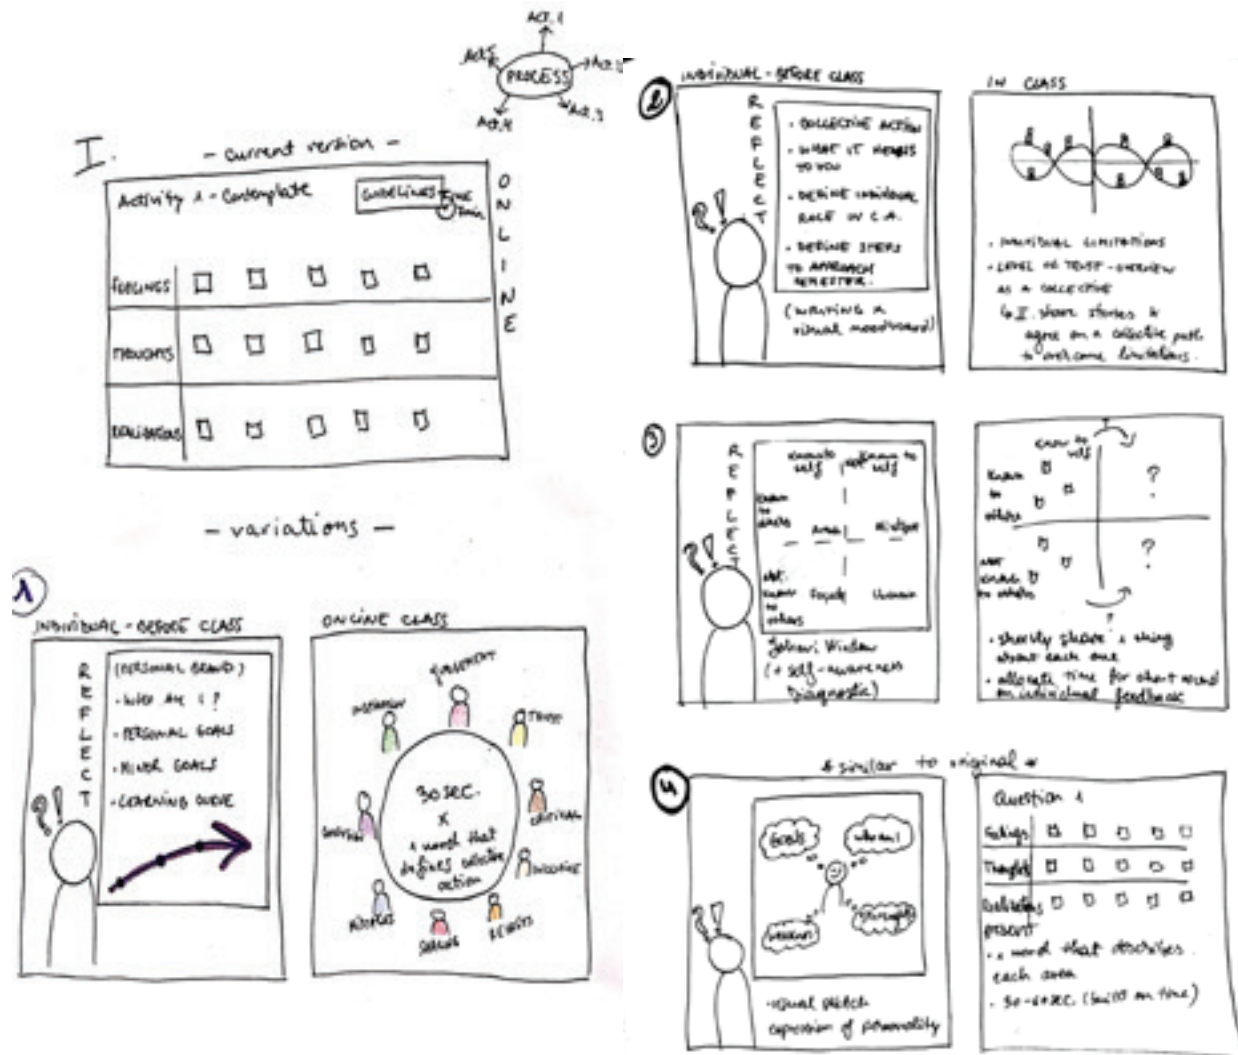 Act. 1
PROCESS
Act. 3
Act. 4
I.
- current version -
Activity 1 - Contemplate
GUIDELINES
ONLINE
FEELINGS
THOUGHTS
- variations -
1
INDIVIDUAL - BEFORE CLASS
REFLECT
(PERSONAL BRAND)
- WHO AM I?
- PERSONAL GOALS
- MINOR GOALS
- LEARNING CURVE
ONLINE CLASS
TRUST
SHARING
30 SEC.
X
1 word that
defines
action
2
INDIVIDUAL - BEFORE CLASS
REFLECT
- COLLECTIVE ACTION
- WHAT IT MEANS
TO YOU
- DEFINE INDIVIDUAL
ROLE IN C.A.
- DEFINE STEPS
TO APPROACH
SEMESTER.
(WRITING x
visual moodboard)
IN CLASS
- INDIVIDUAL LIMITATIONS
- LEVEL OF TRUST - OVERVIEW
AS A COLLECTIVE
share stories &
agree on a collective path
to overcome limitations.
3
REFLECT
Known to
self
not known to
self
Known
to
others
Area
Not
known
to
others
Façade
Unknown
Johari Window
(+ self-awareness
Diagnostic)
Know to
self
Known
to
others
?
NOT
KNOWN
TO
others
?
?
- shortly share 1 thing
about each one
- allocate time for short round
on individual feedback
4
* similar to original *
Goals
who am I
Strengths
- visual sketch
expression of personality
Question 1
Feelings
Thoughts
Realizations
present
- 1 word that describes
each area
- 30-60 sec. (build on time)